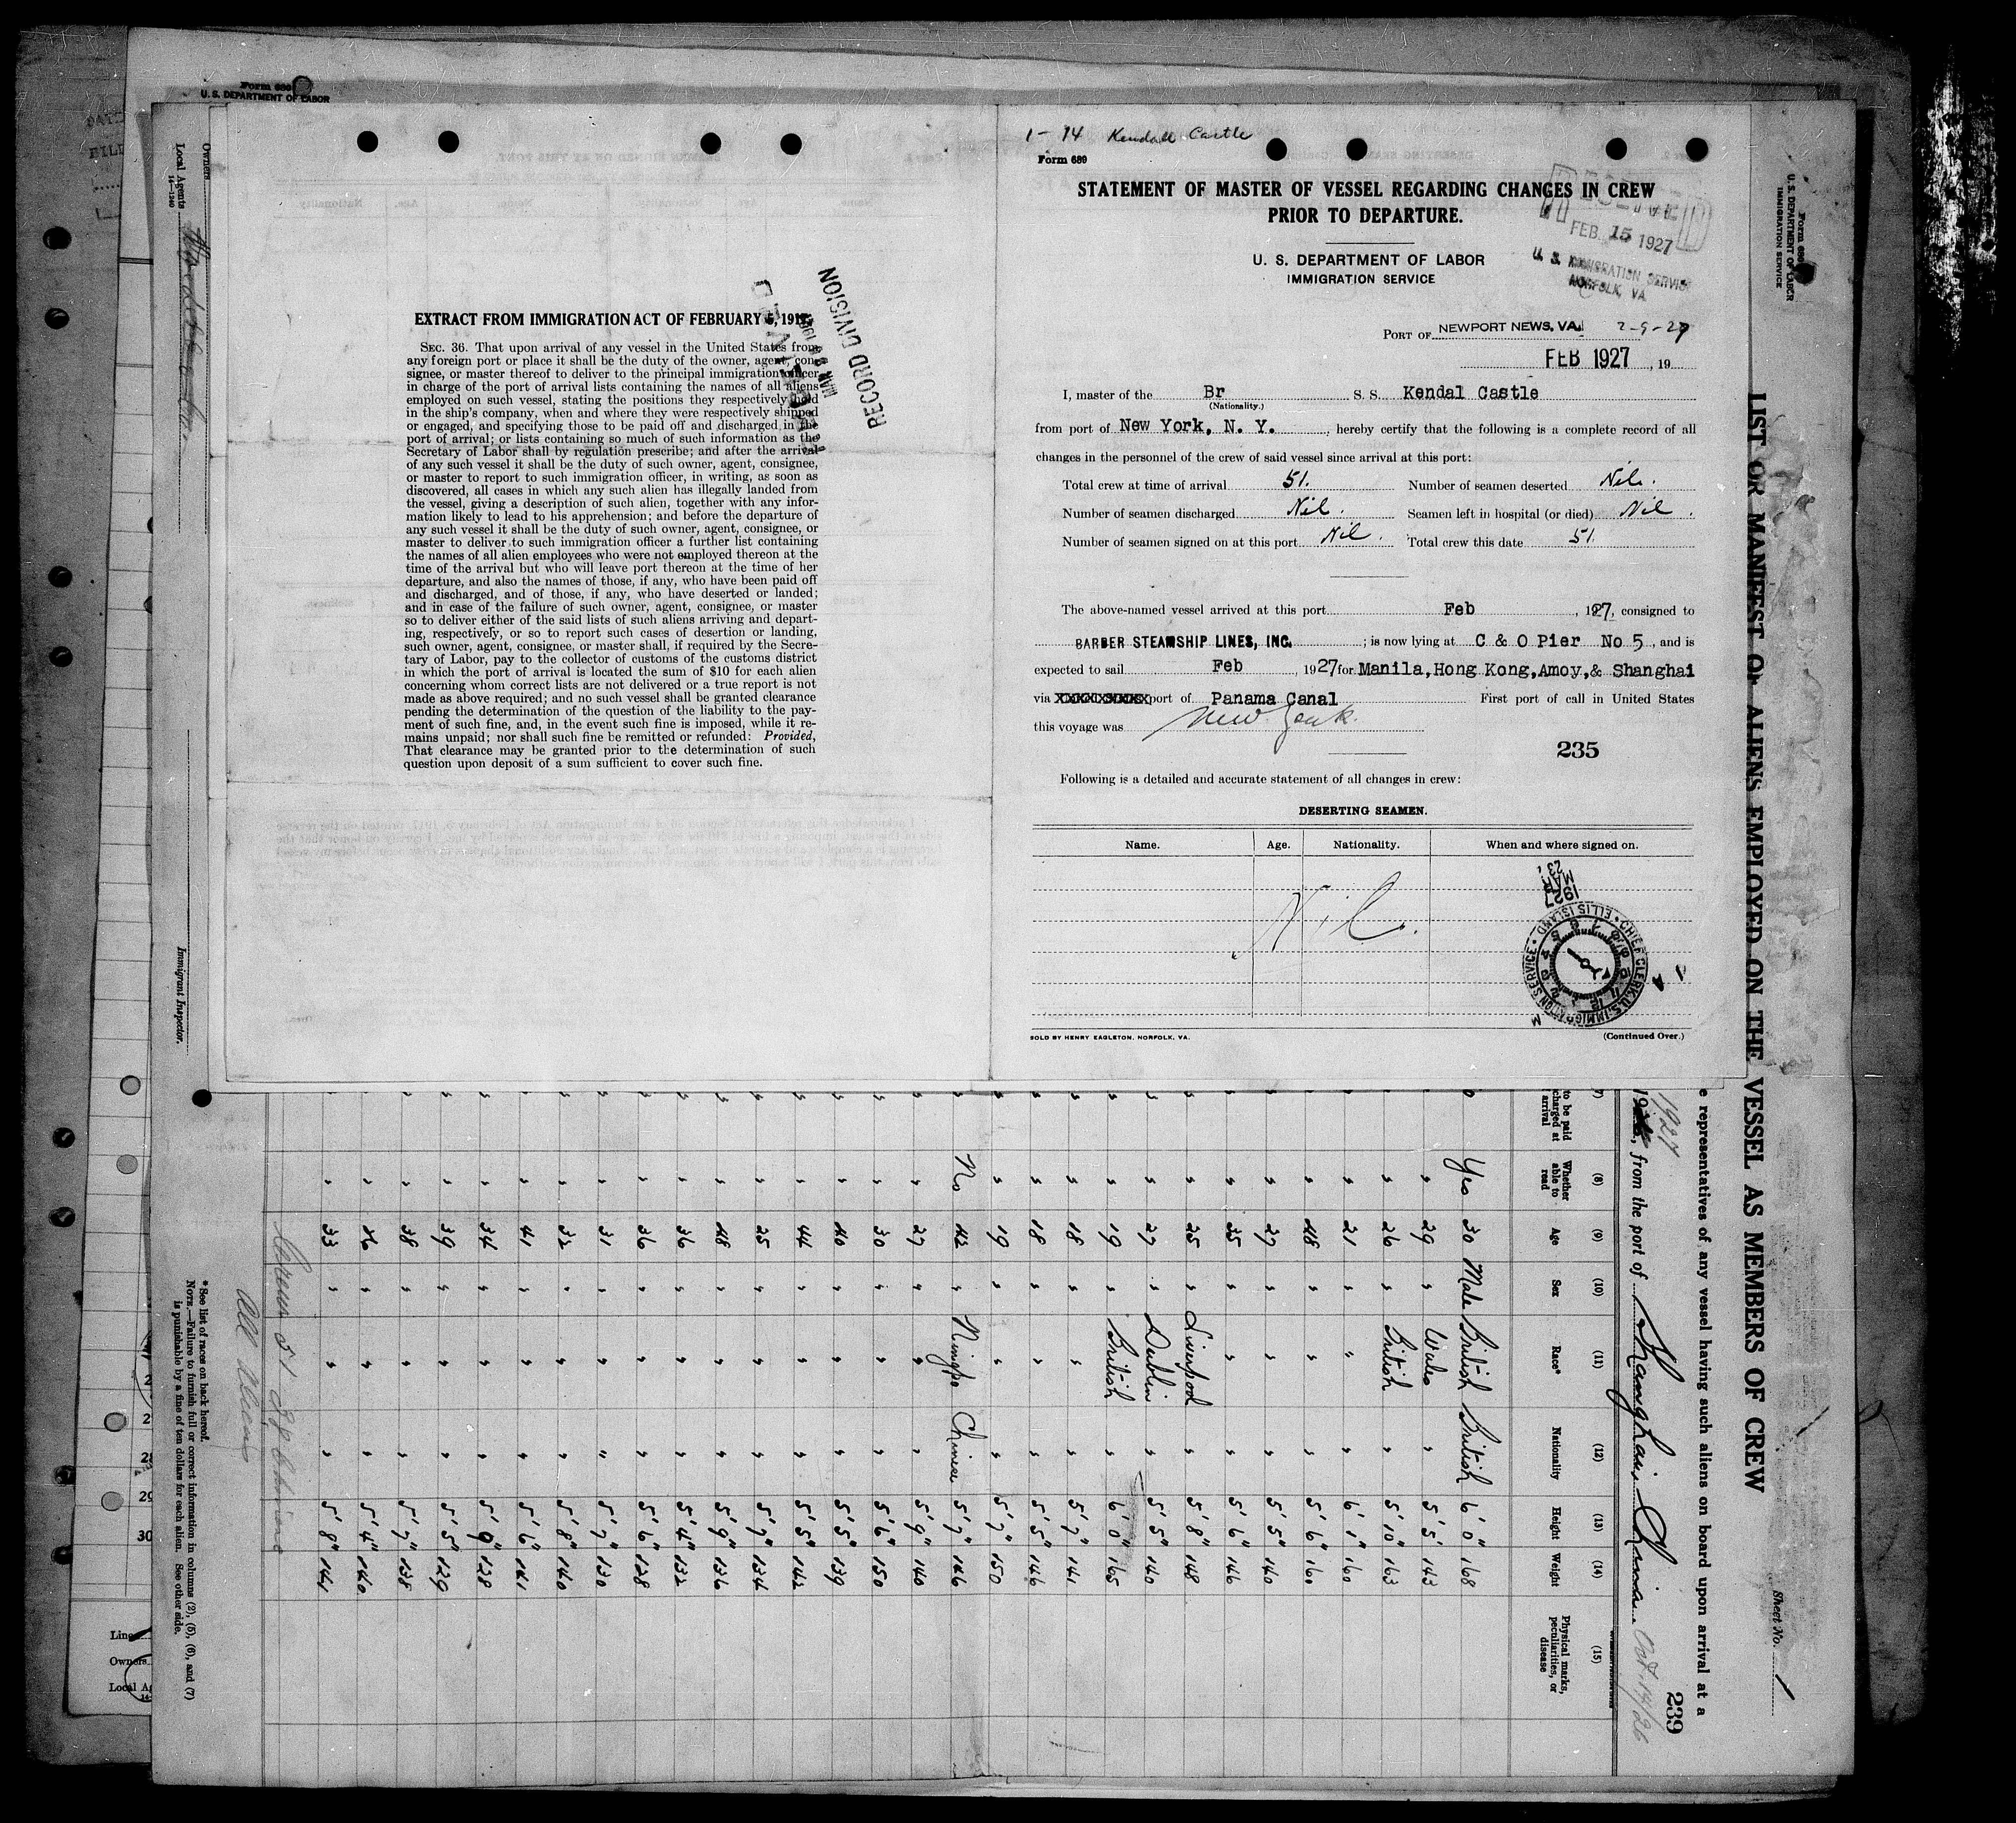 Form 686
U. S. DEPARTMENT OF LABOR
Owners
Local Agents
14—1240
Immigrant Inspector.
EXTRACT FROM IMMIGRATION ACT OF FEBRUARY 5, 1917.
SEC. 36. That upon arrival of any vessel in the United States from
any foreign port or place it shall be the duty of the owner, agent, con-
signee, or master thereof to deliver to the principal immigration officer
in charge of the port of arrival lists containing the names of all aliens
employed on such vessel, stating the positions they respectively hold
in the ship's company, when and where they were respectively shipped
or engaged, and specifying those to be paid off and discharged in the
port of arrival; or lists containing so much of such information as the
Secretary of Labor shall by regulation prescribe; and after the arrival
of any such vessel it shall be the duty of such owner, agent, consignee,
or master to report to such immigration officer, in writing, as soon as
discovered, all cases in which any such alien has illegally landed from
the vessel, giving a description of such alien, together with any infor-
mation likely to lead to his apprehension; and before the departure of
any such vessel it shall be the duty of such owner, agent, consignee, or
master to deliver to such immigration officer a further list containing
the names of all alien employees who were not employed thereon at the
time of the arrival but who will leave port thereon at the time of her
departure, and also the names of those, if any, who have been paid off
and discharged, and of those, if any, who have deserted or landed;
and in case of the failure of such owner, agent, consignee, or master
so to deliver either of the said lists of such aliens arriving and depart-
ing, respectively, or so to report such cases of desertion or landing,
such owner, agent, consignee, or master shall, if required by the Secre-
tary of Labor, pay to the collector of customs of the customs district
in which the port of arrival is located the sum of $10 for each alien
concerning whom correct lists are not delivered or a true report is not
made as above required; and no such vessel shall be granted clearance
pending the determination of the question of the liability to the pay-
ment of such fine, and, in the event such fine is imposed, while it re-
mains unpaid; nor shall such fine be remitted or refunded: Provided,
That clearance may be granted prior to the determination of such
question upon deposit of a sum sufficient to cover such fine.
RECORD DIVISION
1- 74 Kendall Castle
Form 689
STATEMENT OF MASTER OF VESSEL REGARDING CHANGES IN CREW
PRIOR TO DEPARTURE.
RECEIVED
FEB. 15 1927
U. S. IMMIGRATION SERVICE
NORFOLK, VA.
U. S. DEPARTMENT OF LABOR
IMMIGRATION SERVICE
PORT OF NEWPORT NEWS, VA. 2-9-27
FEB 1927 , 19
I, master of the Br S. S. Kendal Castle
(Nationality.)
from port of New York, N. Y. , hereby certify that the following is a complete record of all
changes in the personnel of the crew of said vessel since arrival at this port:
Total crew at time of arrival 51. Number of seamen deserted Nil.
Number of seamen discharged Nil. Seamen left in hospital (or died) Nil.
Number of seamen signed on at this port Nil. Total crew this date 51.
The above-named vessel arrived at this port Feb , 1927, consigned to
BARBER STEAMSHIP LINES, INC. ; is now lying at C & O Pier No 5 , and is
expected to sail Feb , 1927 for Manila, Hong Kong, Amoy, & Shanghai
via port of Panama Canal First port of call in United States
this voyage was New York.
235
Following is a detailed and accurate statement of all changes in crew:
DESERTING SEAMEN.
Name. Age. Nationality. When and where signed on.
Nil.
1927
MAR
23
CHIEF CLERK U.S. IMMIGRATION SERVICE • ELLIS ISLAND •
SOLD BY HENRY EAGLETON, NORFOLK, VA.
(Continued Over.)
Form 689
U. S. DEPARTMENT OF LABOR
IMMIGRATION SERVICE
Sheet No. 1
LIST OR MANIFEST OF ALIENS EMPLOYED ON THE VESSEL AS MEMBERS OF CREW
e representatives of any vessel having such aliens on board upon arrival at a
239
1927
, from the port of Shanghai, China. Oct. 14/26
(7) (8) (9) (10) (11) (12) (13) (14) (15)
to be paid charged at arrival Whether able to read Age Sex Race* Nationality Height Weight Physical marks, peculiarities, or disease
Yes 30 Male British British 6' 0" 168
" 29 " Wales " 5' 5" 143
" 26 " British " 5' 10" 163
" 21 " " " 6' 1" 160
" 48 " " " 5' 6" 160
" 27 " " " 5' 5" 140
" 35 " " " 5' 6" 146
" 25 " Liverpool " 5' 8" 148
" 27 " Dublin " 5' 5" 140
" 19 " British " 6' 0" 165
" 18 " " " 5' 7" 141
" 18 " " " 5' 5" 146
" 19 " " " 5' 7" 150
No 42 " Ningpo Chinese 5' 7" 146
" 27 " " " 5' 9" 140
" 30 " " " 5' 6" 150
" 40 " " " 5' 5" 139
" 44 " " " 5' 5" 142
" 25 " " " 5' 7" 134
" 48 " " " 5' 9" 136
" 36 " " " 5' 4" 132
" 36 " " " 5' 6" 128
" 31 " " " 5' 7" 130
" 32 " " " 5' 8" 140
" 41 " " " 5' 6" 141
" 34 " " " 5' 9" 128
" 39 " " " 5' 5" 129
" 38 " " " 5' 7" 138
" 26 " " " 5' 4" 140
" 33 " " " 5' 8" 141
Crew 51 38 Chinese
All Aliens
*See list of races on back hereof.
NOTE.—Failure to furnish full or correct information in columns (2), (5), (6), and (7)
is punishable by a fine of ten dollars for each alien. See other side.
29
30
Line
Owners
Local Ag